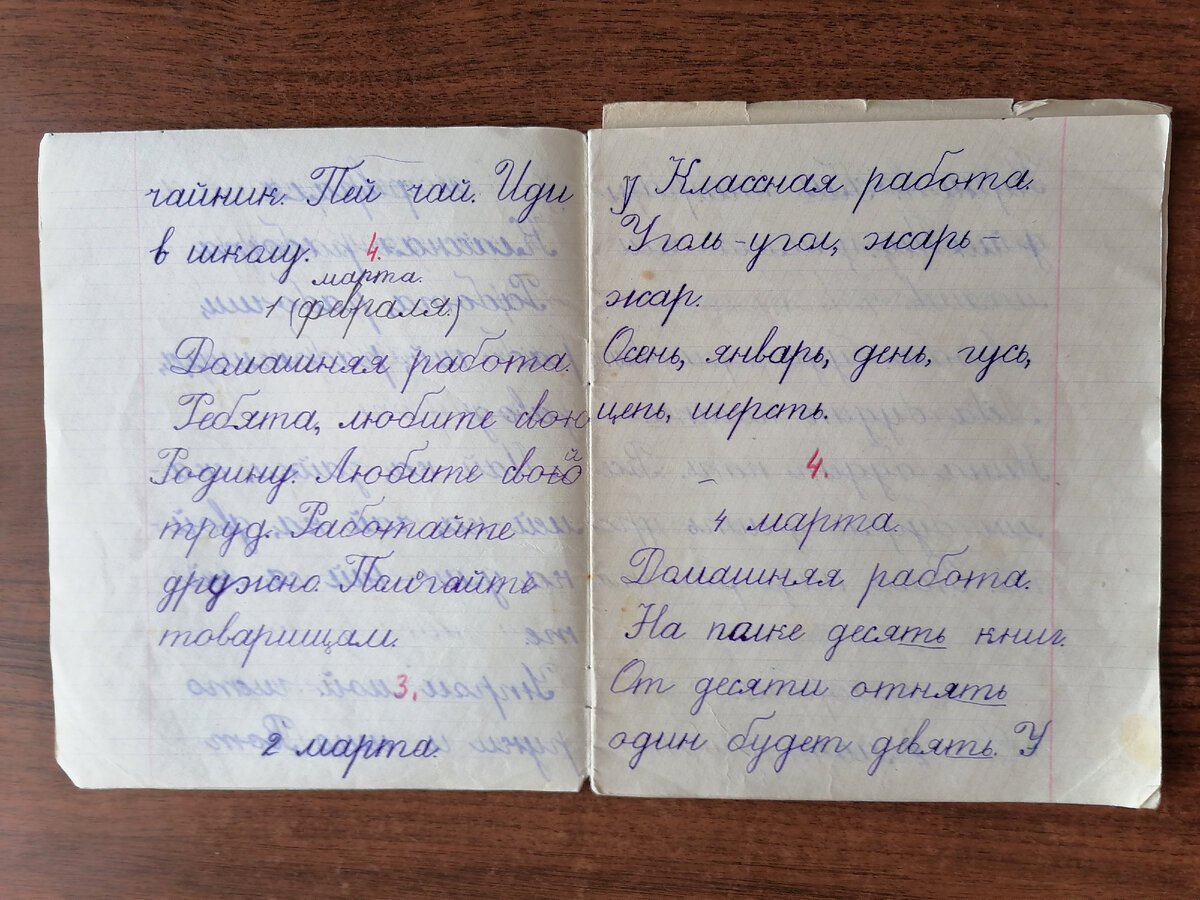 чайник. Пей чай. Иди
в школу. 4.
марта.
1 (февраля.)
Домашняя работа.
Ребята, любите свою
Родину. Любите свой
труд. Работайте
дружно. Помогайте
товарищам.
3.
2 марта.
у Классная работа.
Уголь - угол, жарь -
жар.
Осень, январь, день, гусь,
цепь, шерсть.
4.
4 марта.
Домашняя работа.
На полке десять книг.
От десяти отнять
один будет девять. У